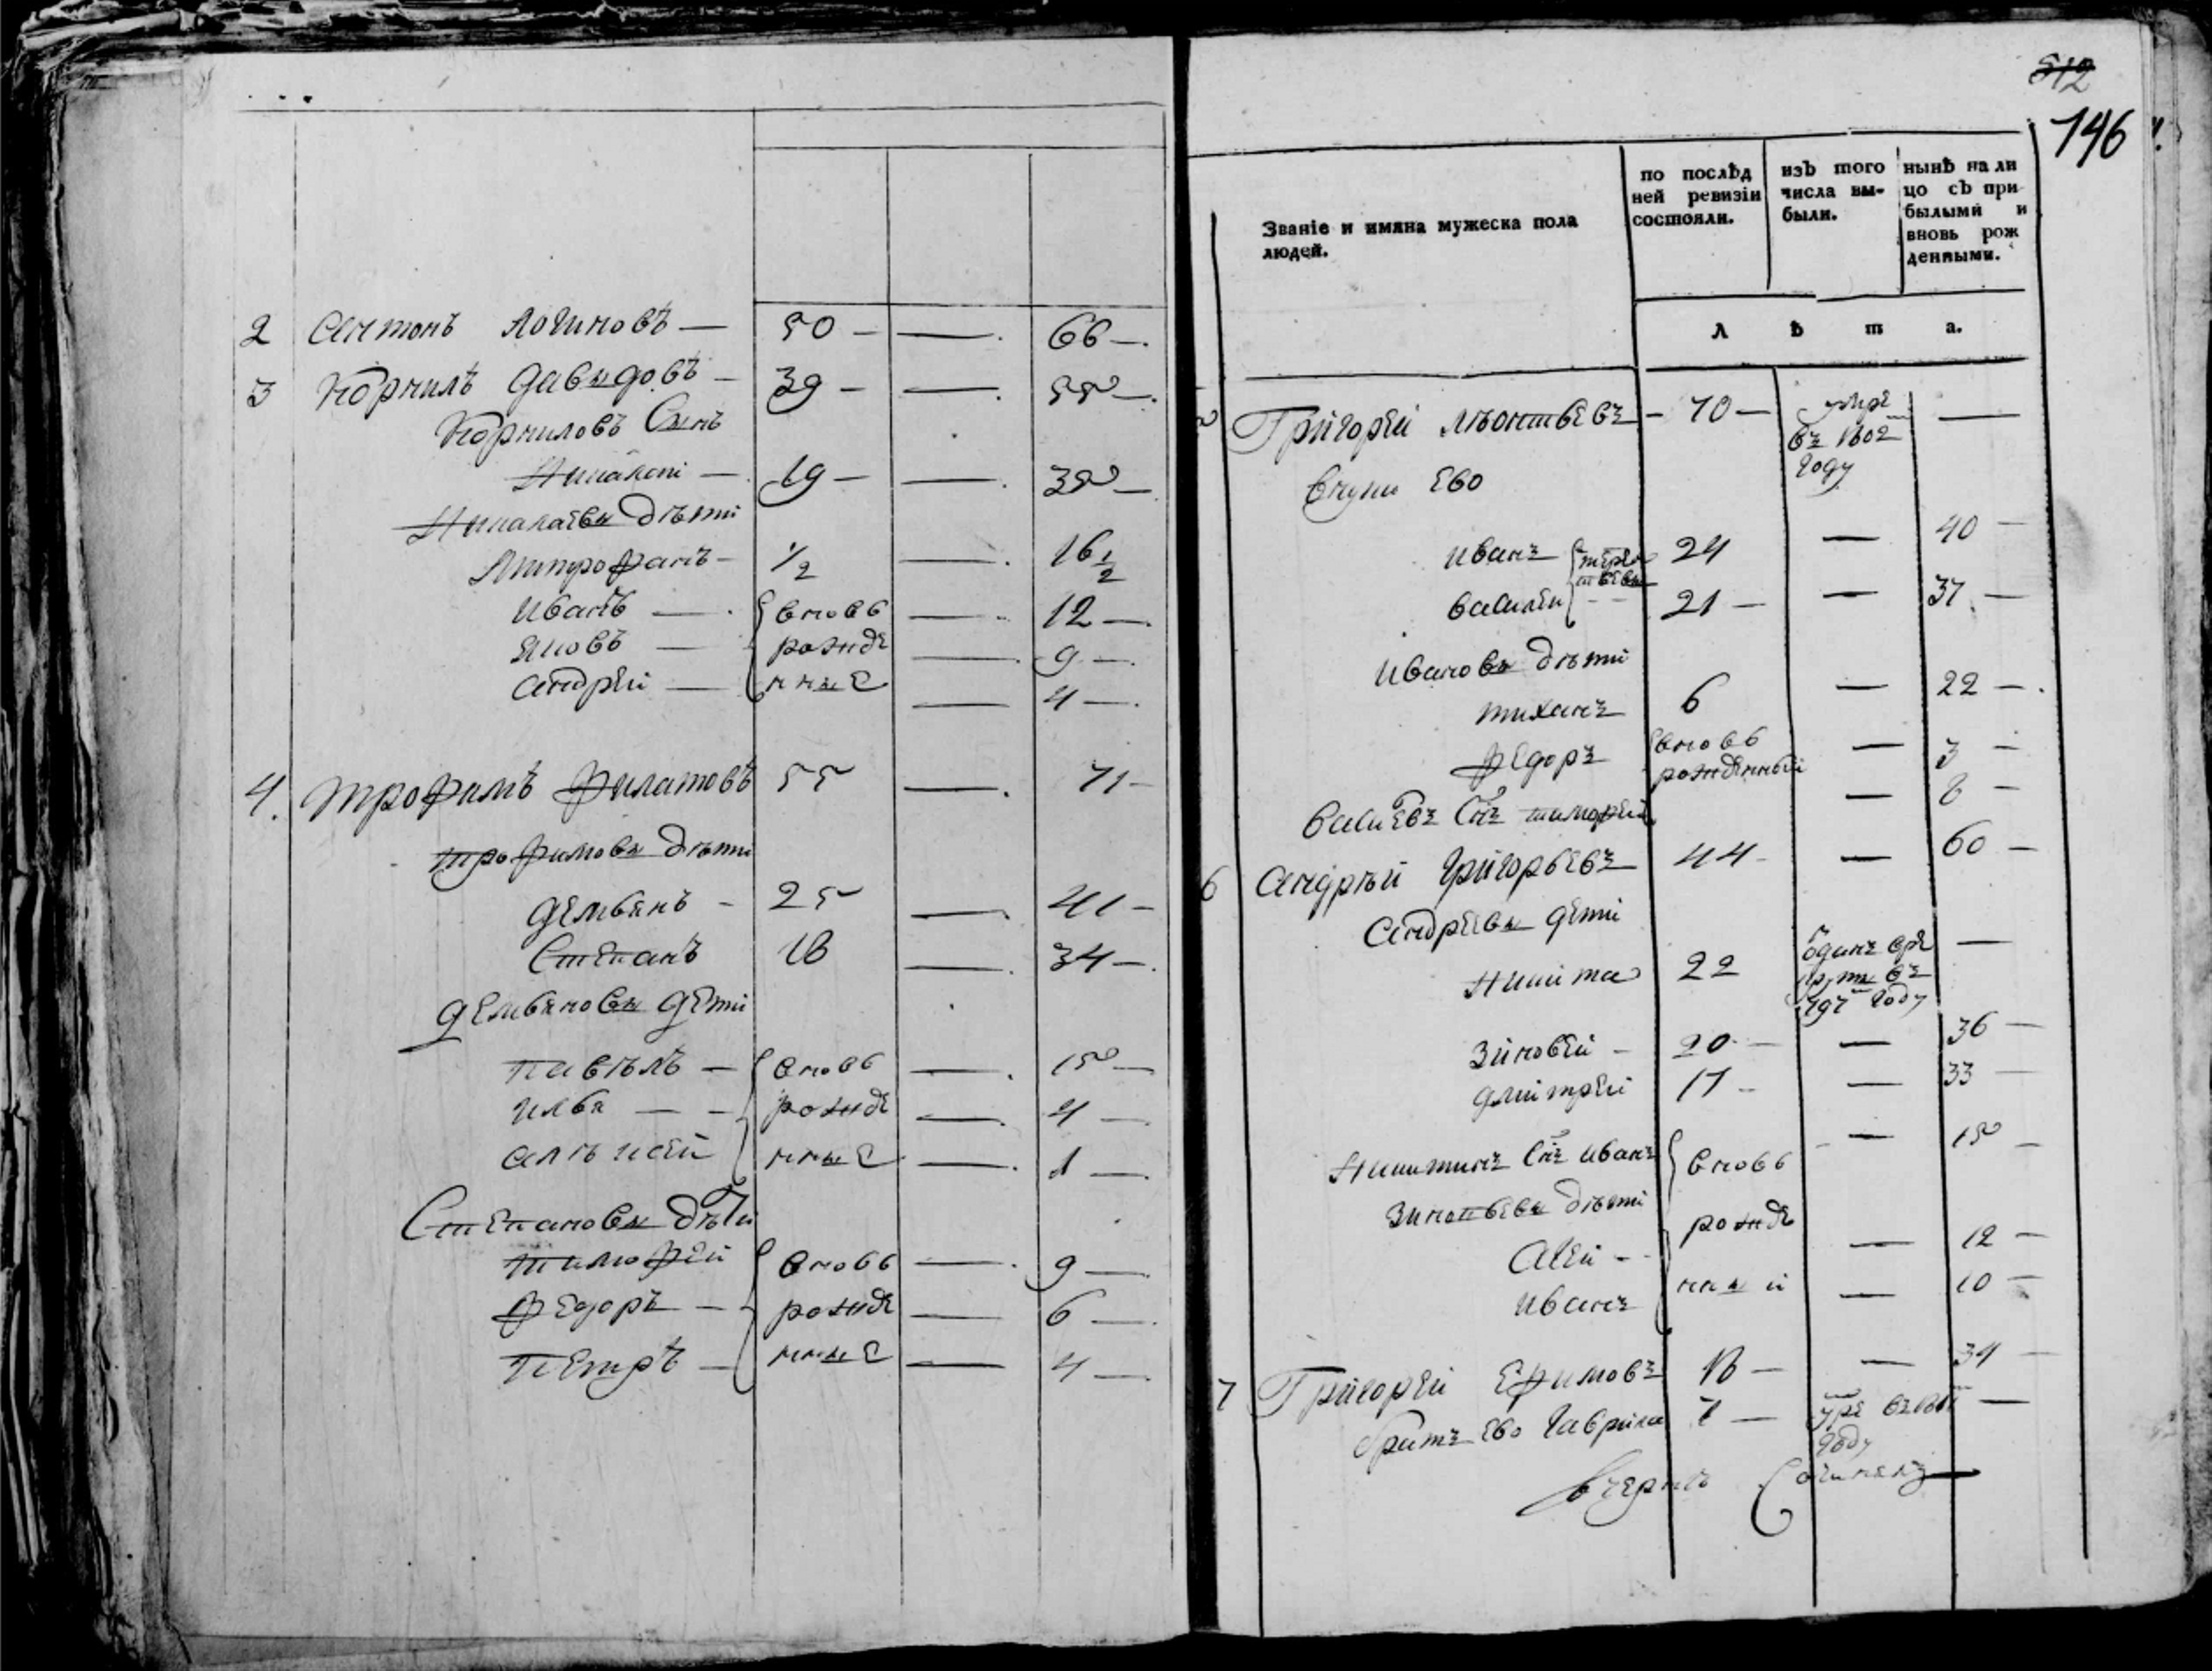 2 Антонъ Логиновъ — 50 — — 66 —
3 Корнилъ Давыдовъ — 39 — — 55 —
Корниловъ Сынъ
Никалаи — 19 — — 35 —
Никалаевы Дѣти
Митрофанъ — 1/2 — 16 1/2
Иванъ — вновь — 12 —
Яковъ — рожде — 9 —
Андрей — нные — 4 —
4. Трофимъ Филатовъ 55 — 71 —
Трофимовы Дѣти
Демьянъ — 25 — 41 —
Степанъ 18 — 34 —
Демьяновы Дети
Павѣлъ — вновь — 15 —
Илья — — рожде — 4 —
Алѣксей нные — 1 —
Степановы Дѣти
Тимофей вновь — 9 —
Федоръ — рожде — 6 —
Петръ — нные — 4 —
512
146
Званіе и имяна мужеска пола людей.
по послѣд ней ревизіи состояли.
изъ того числа вы- были.
нынѣ на ли цо съ при- былыми и вновь рож денными.
Л ѣ т а.
Григорей Лѣонтьевъ — 70 — умре —
въ 1802
году
внуки ево
Иванъ терентьевы 24 — 40 —
Василеи — — 21 — — 37 —
Ивановы Дѣти
Тиханъ 6 — 22 —
Федоръ вновь рожденный — 3 —
Васильевъ Снъ Тимофей — 8 —
6 Андрѣй Григорьевъ 44 — — 60 —
Андреевы Дети
Никита 22 отданъ в ре —
круты въ
797 году
Зиновей — 20 — — 36 —
Дмитрей 17 — — 33 —
Никитинъ Снъ Иванъ вновь — 15 —
Зиновьевы Дѣти рожде
Авей — — 12 —
Иванъ нны й — 10 —
7 Григорей Ефимовъ 18 — — 34 —
братъ ево Гаврила 7 — умре въ —
году